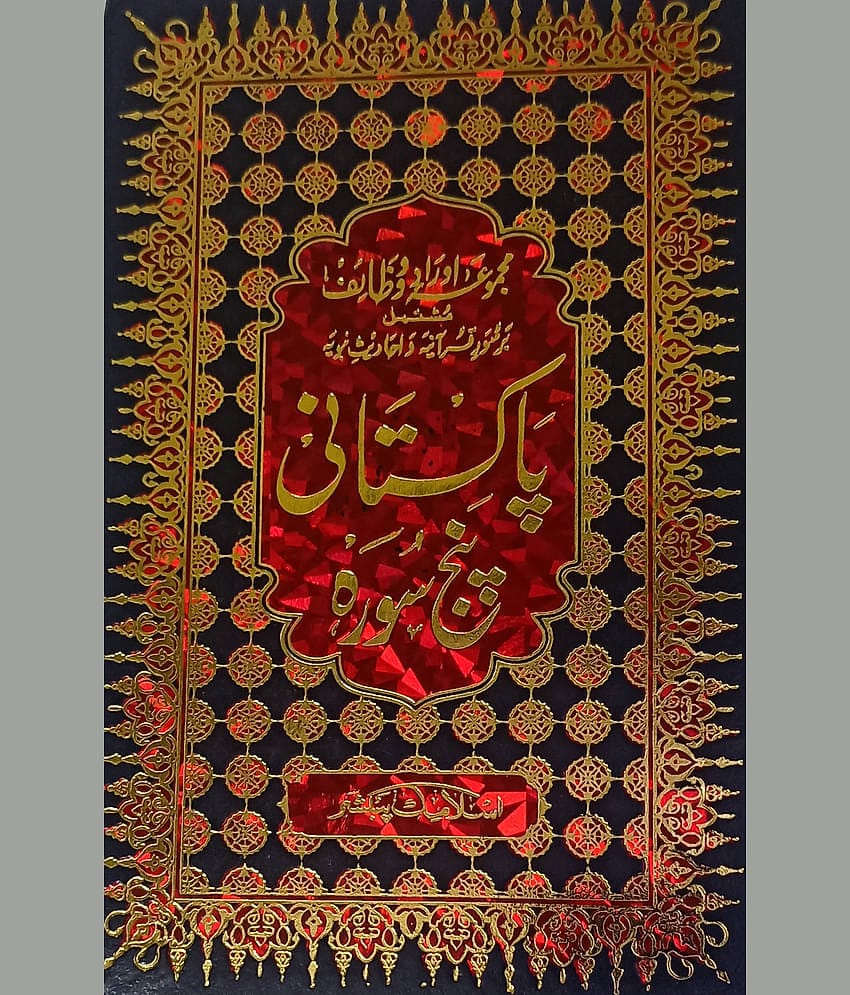 مجموعہ اوراد و وظائف
مشتمل
بر سُورِ قرآنیہ و احادیثِ نبویہ
پاکستانی
پنج سُورَہ
اسلامک پبلشر